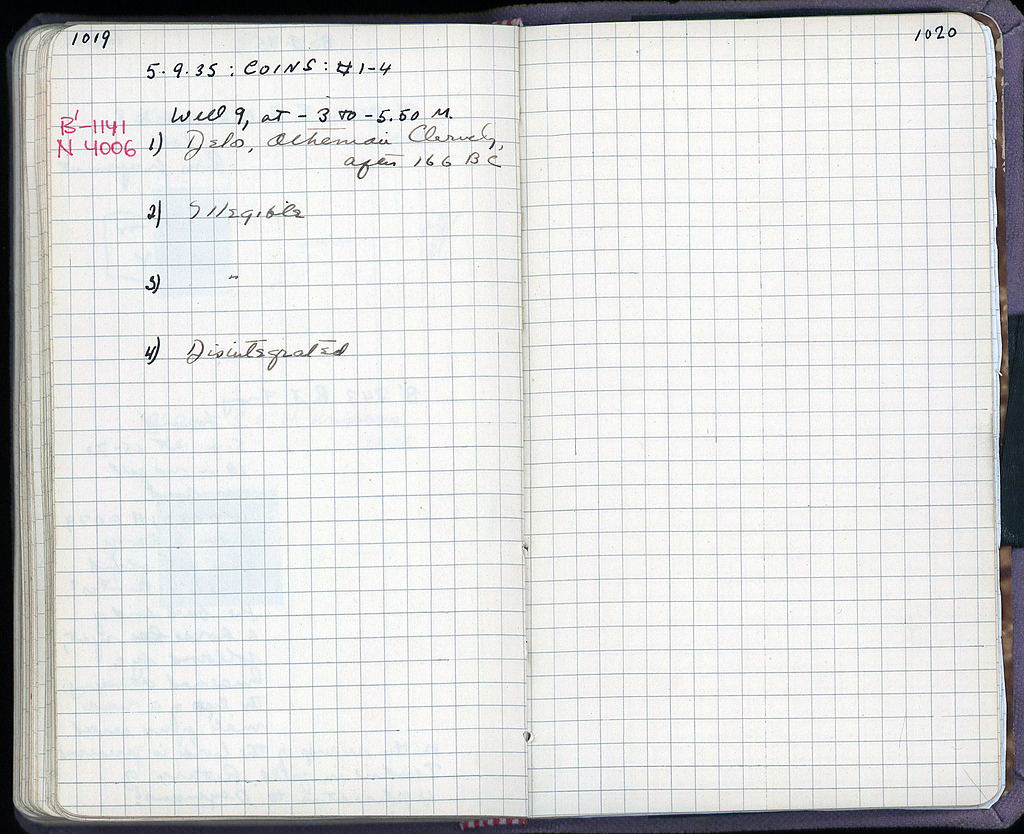 1019
1020
5.9.35 : COINS : #1-4
Well 9, at -3 to -5.50 M.
B'-1141
N 4006
1) Delo, Athenian Cleruchy,
after 166 BC
2) Illegible
3) "
4) Disintegrated